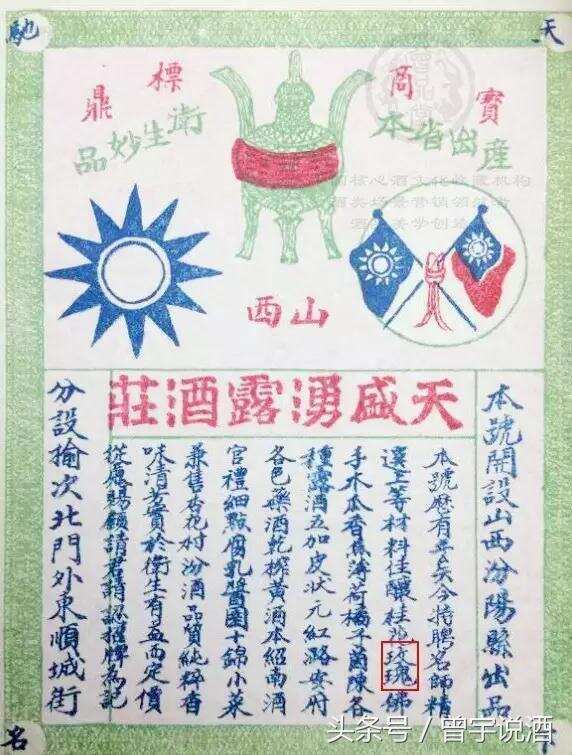 天
馳
名
寶商標鼎
本省出產
衛生妙品
山西
天盛湧露酒莊
本號開設山西汾陽縣出品
本號歷有年矣今特聘名師精
選上等材料佳釀桂花玫瑰佛
手木瓜香蕉薄荷橘子茵陳各
種露酒五加皮狀元紅潞安府
各色藥酒乾榨黃酒本紹南酒
官禮細點乳醬園十錦小菜
兼售杏花村汾酒品質純粹香
味清芬實於衛生有益而定價
從廉賜顧請認招牌為記
分設榆次北門外東順城街
核心酒文化收藏机构
酒类场景营销领
头条号/曾宇说酒